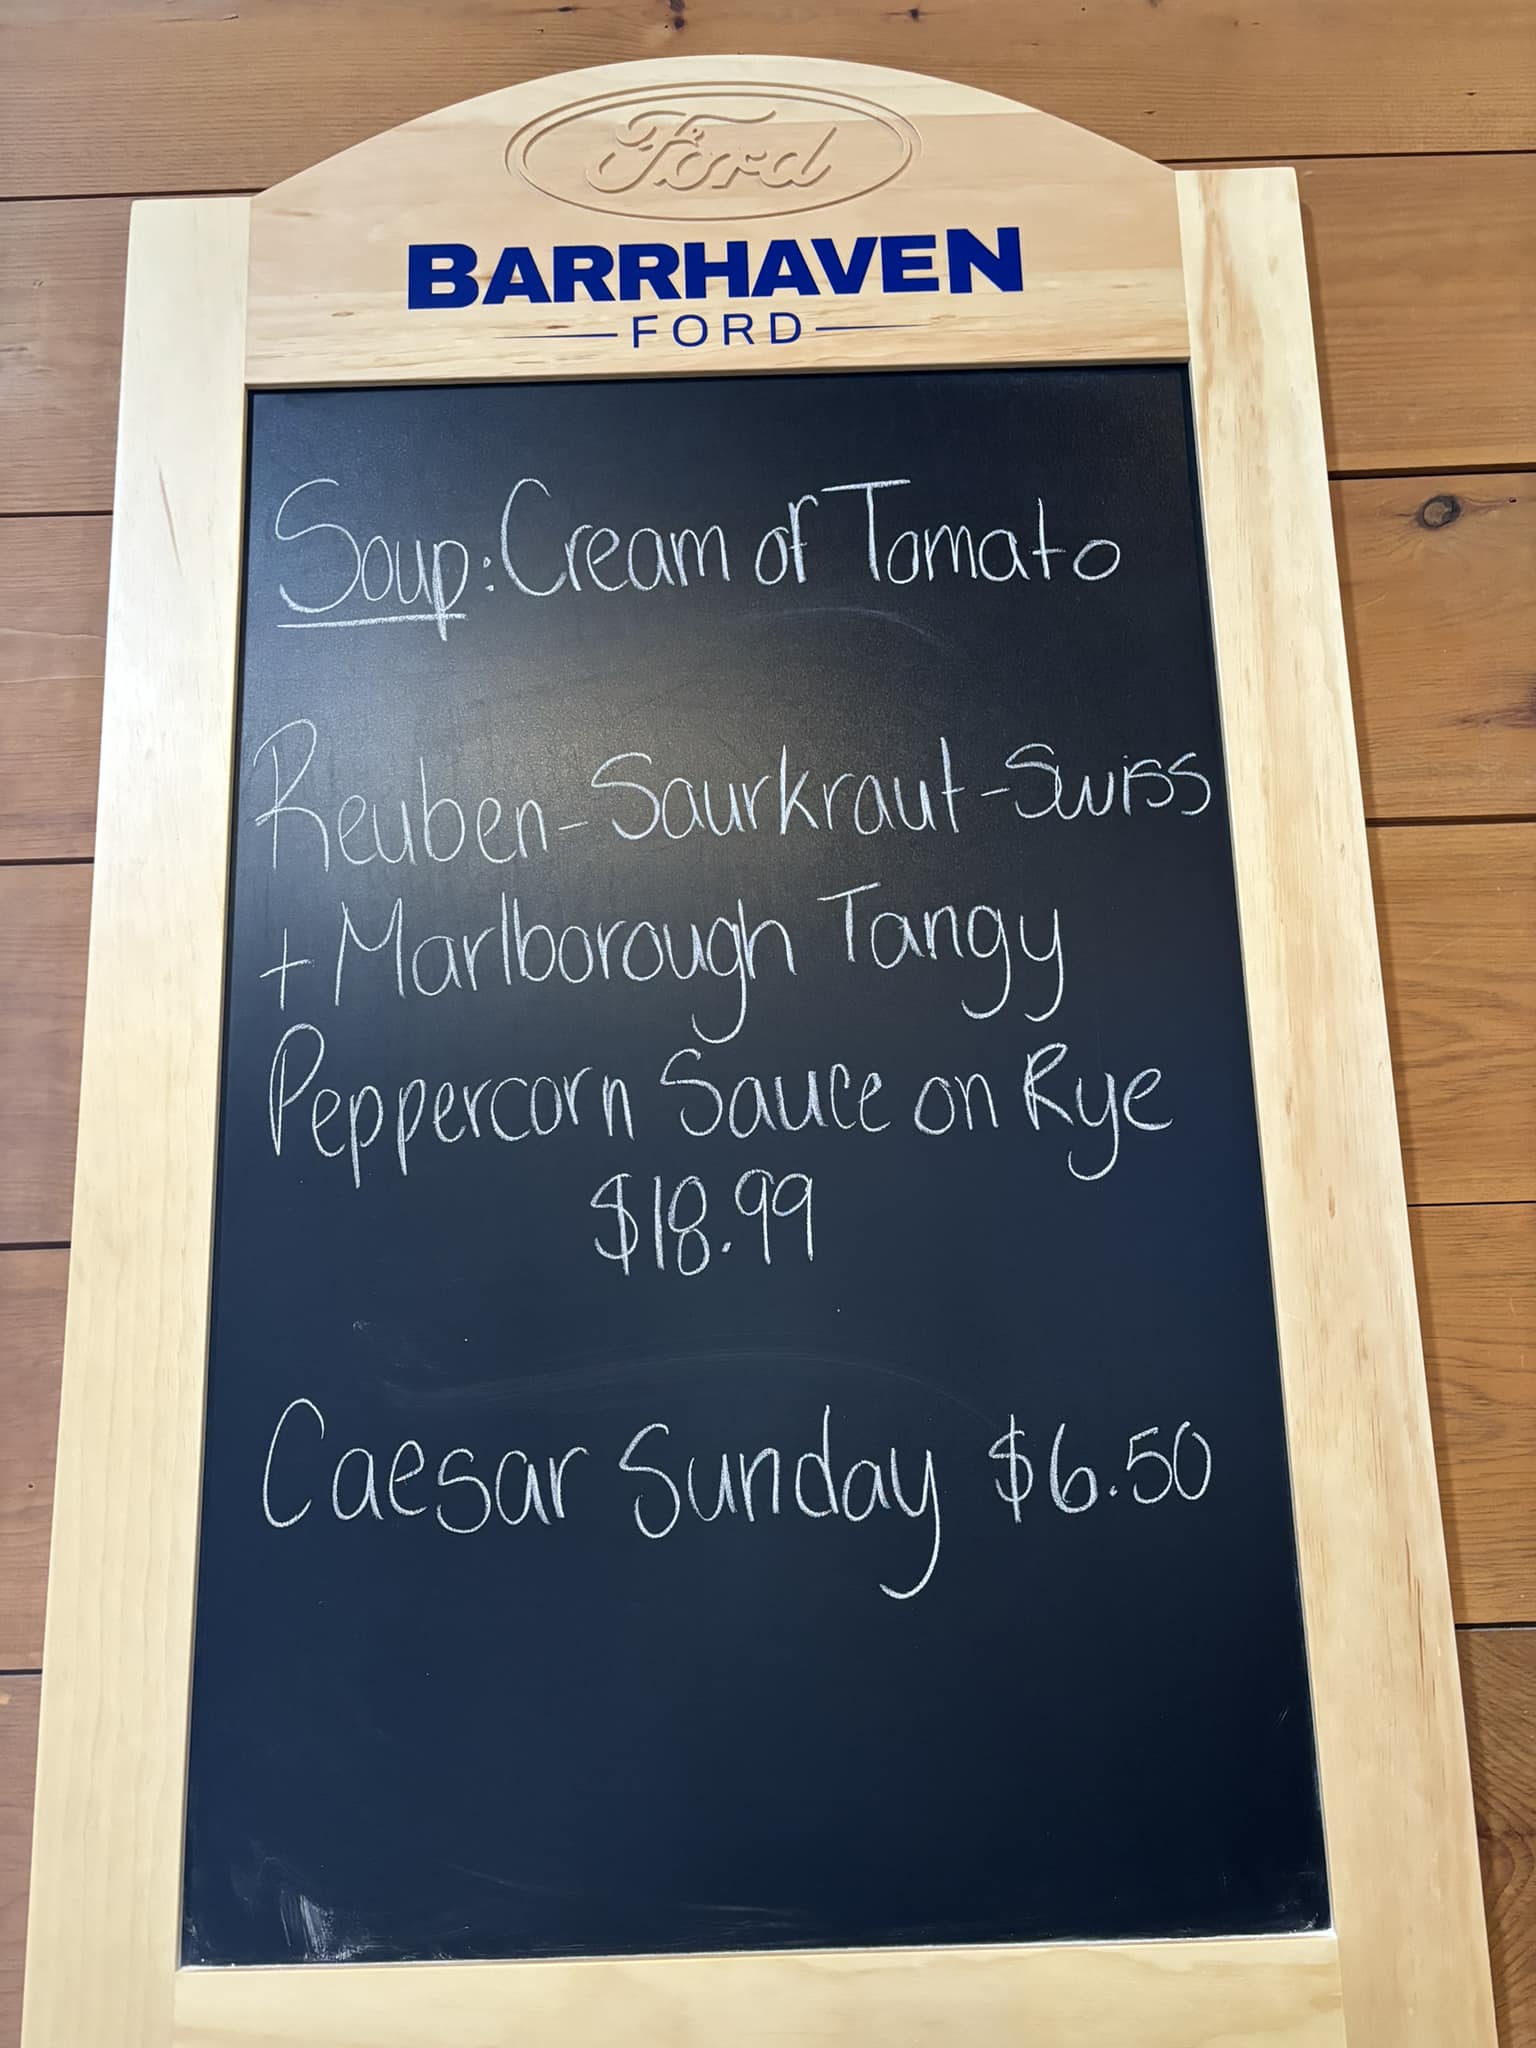 Ford
BARRHAVEN
FORD
Soup: Cream of Tomato
Reuben - Saurkraut - Swiss
+ Marlborough Tangy
Peppercorn Sauce on Rye
$18.99
Caesar Sunday $6.50